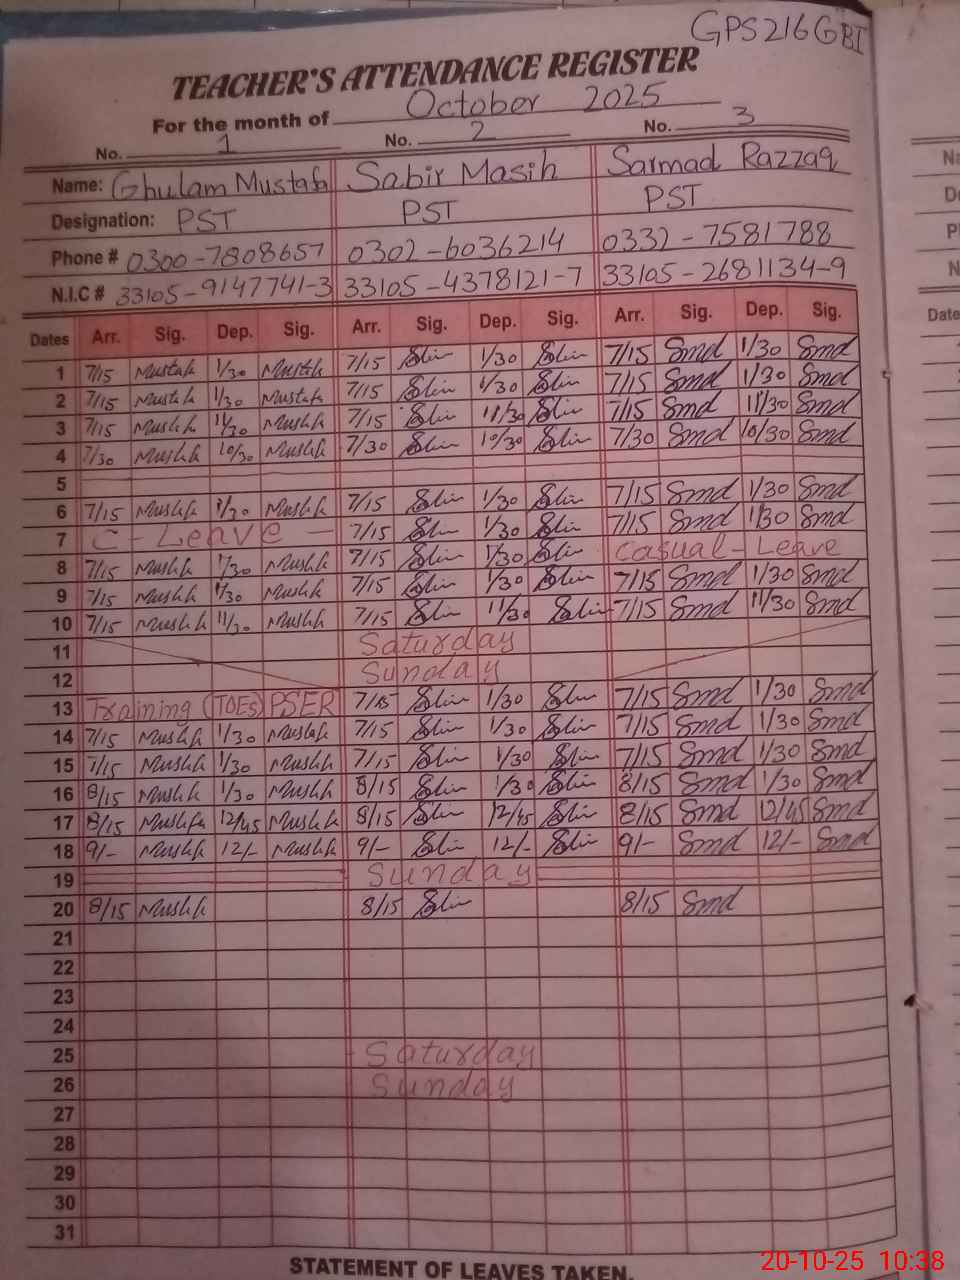 GPS 216 GBI
TEACHER'S ATTENDANCE REGISTER
For the month of October 2025
No. 1 No. 2 No. 3
Name: Ghulam Mustafa Sabir Masih Sarmad Razzaq
Designation: PST PST PST
Phone # 0300-7808657 0302-6036214 0332-7581788
N.I.C # 33105-9147741-3 33105-4378121-7 33105-2681134-9
Dates Arr. Sig. Dep. Sig. Arr. Sig. Dep. Sig. Arr. Sig. Dep. Sig.
1 7/15 Mustafa 1/30 Mustafa 7/15 1/30 7/15 Smd 1/30 Smd
2 7/15 Mustafa 1/30 Mustafa 7/15 1/30 7/15 Smd 1/30 Smd
3 7/15 Mustafa 11/30 Mustafa 7/15 11/30 7/15 Smd 11/30 Smd
4 7/30 Mustafa 10/30 Mustafa 7/30 10/30 7/30 Smd 10/30 Smd
5
6 7/15 Mustafa 1/30 Mustafa 7/15 1/30 7/15 Smd 1/30 Smd
7 C-Leave 7/15 1/30 7/15 Smd 1/30 Smd
8 7/15 Mustafa 1/30 Mustafa 7/15 1/30 Casual-Leave
9 7/15 Mustafa 1/30 Mustafa 7/15 1/30 7/15 Smd 1/30 Smd
10 7/15 Mustafa 11/30 Mustafa 7/15 11/30 7/15 Smd 11/30 Smd
11 Saturday
12 Sunday
13 Training (TOEs) PSER 7/15 1/30 7/15 Smd 1/30 Smd
14 7/15 Mustafa 1/30 Mustafa 7/15 1/30 7/15 Smd 1/30 Smd
15 7/15 Mustafa 1/30 Mustafa 7/15 1/30 7/15 Smd 1/30 Smd
16 8/15 Mustafa 1/30 Mustafa 8/15 1/30 8/15 Smd 1/30 Smd
17 8/15 Mustafa 12/45 Mustafa 8/15 12/45 8/15 Smd 12/45 Smd
18 9/- Mustafa 12/- Mustafa 9/- 12/- 9/- Smd 12/- Smd
19 Sunday
20 8/15 Mustafa 8/15 8/15 Smd
21
22
23
24
25 Saturday
26 Sunday
27
28
29
30
31
STATEMENT OF LEAVES TAKEN.
Date
20-10-25 10:38